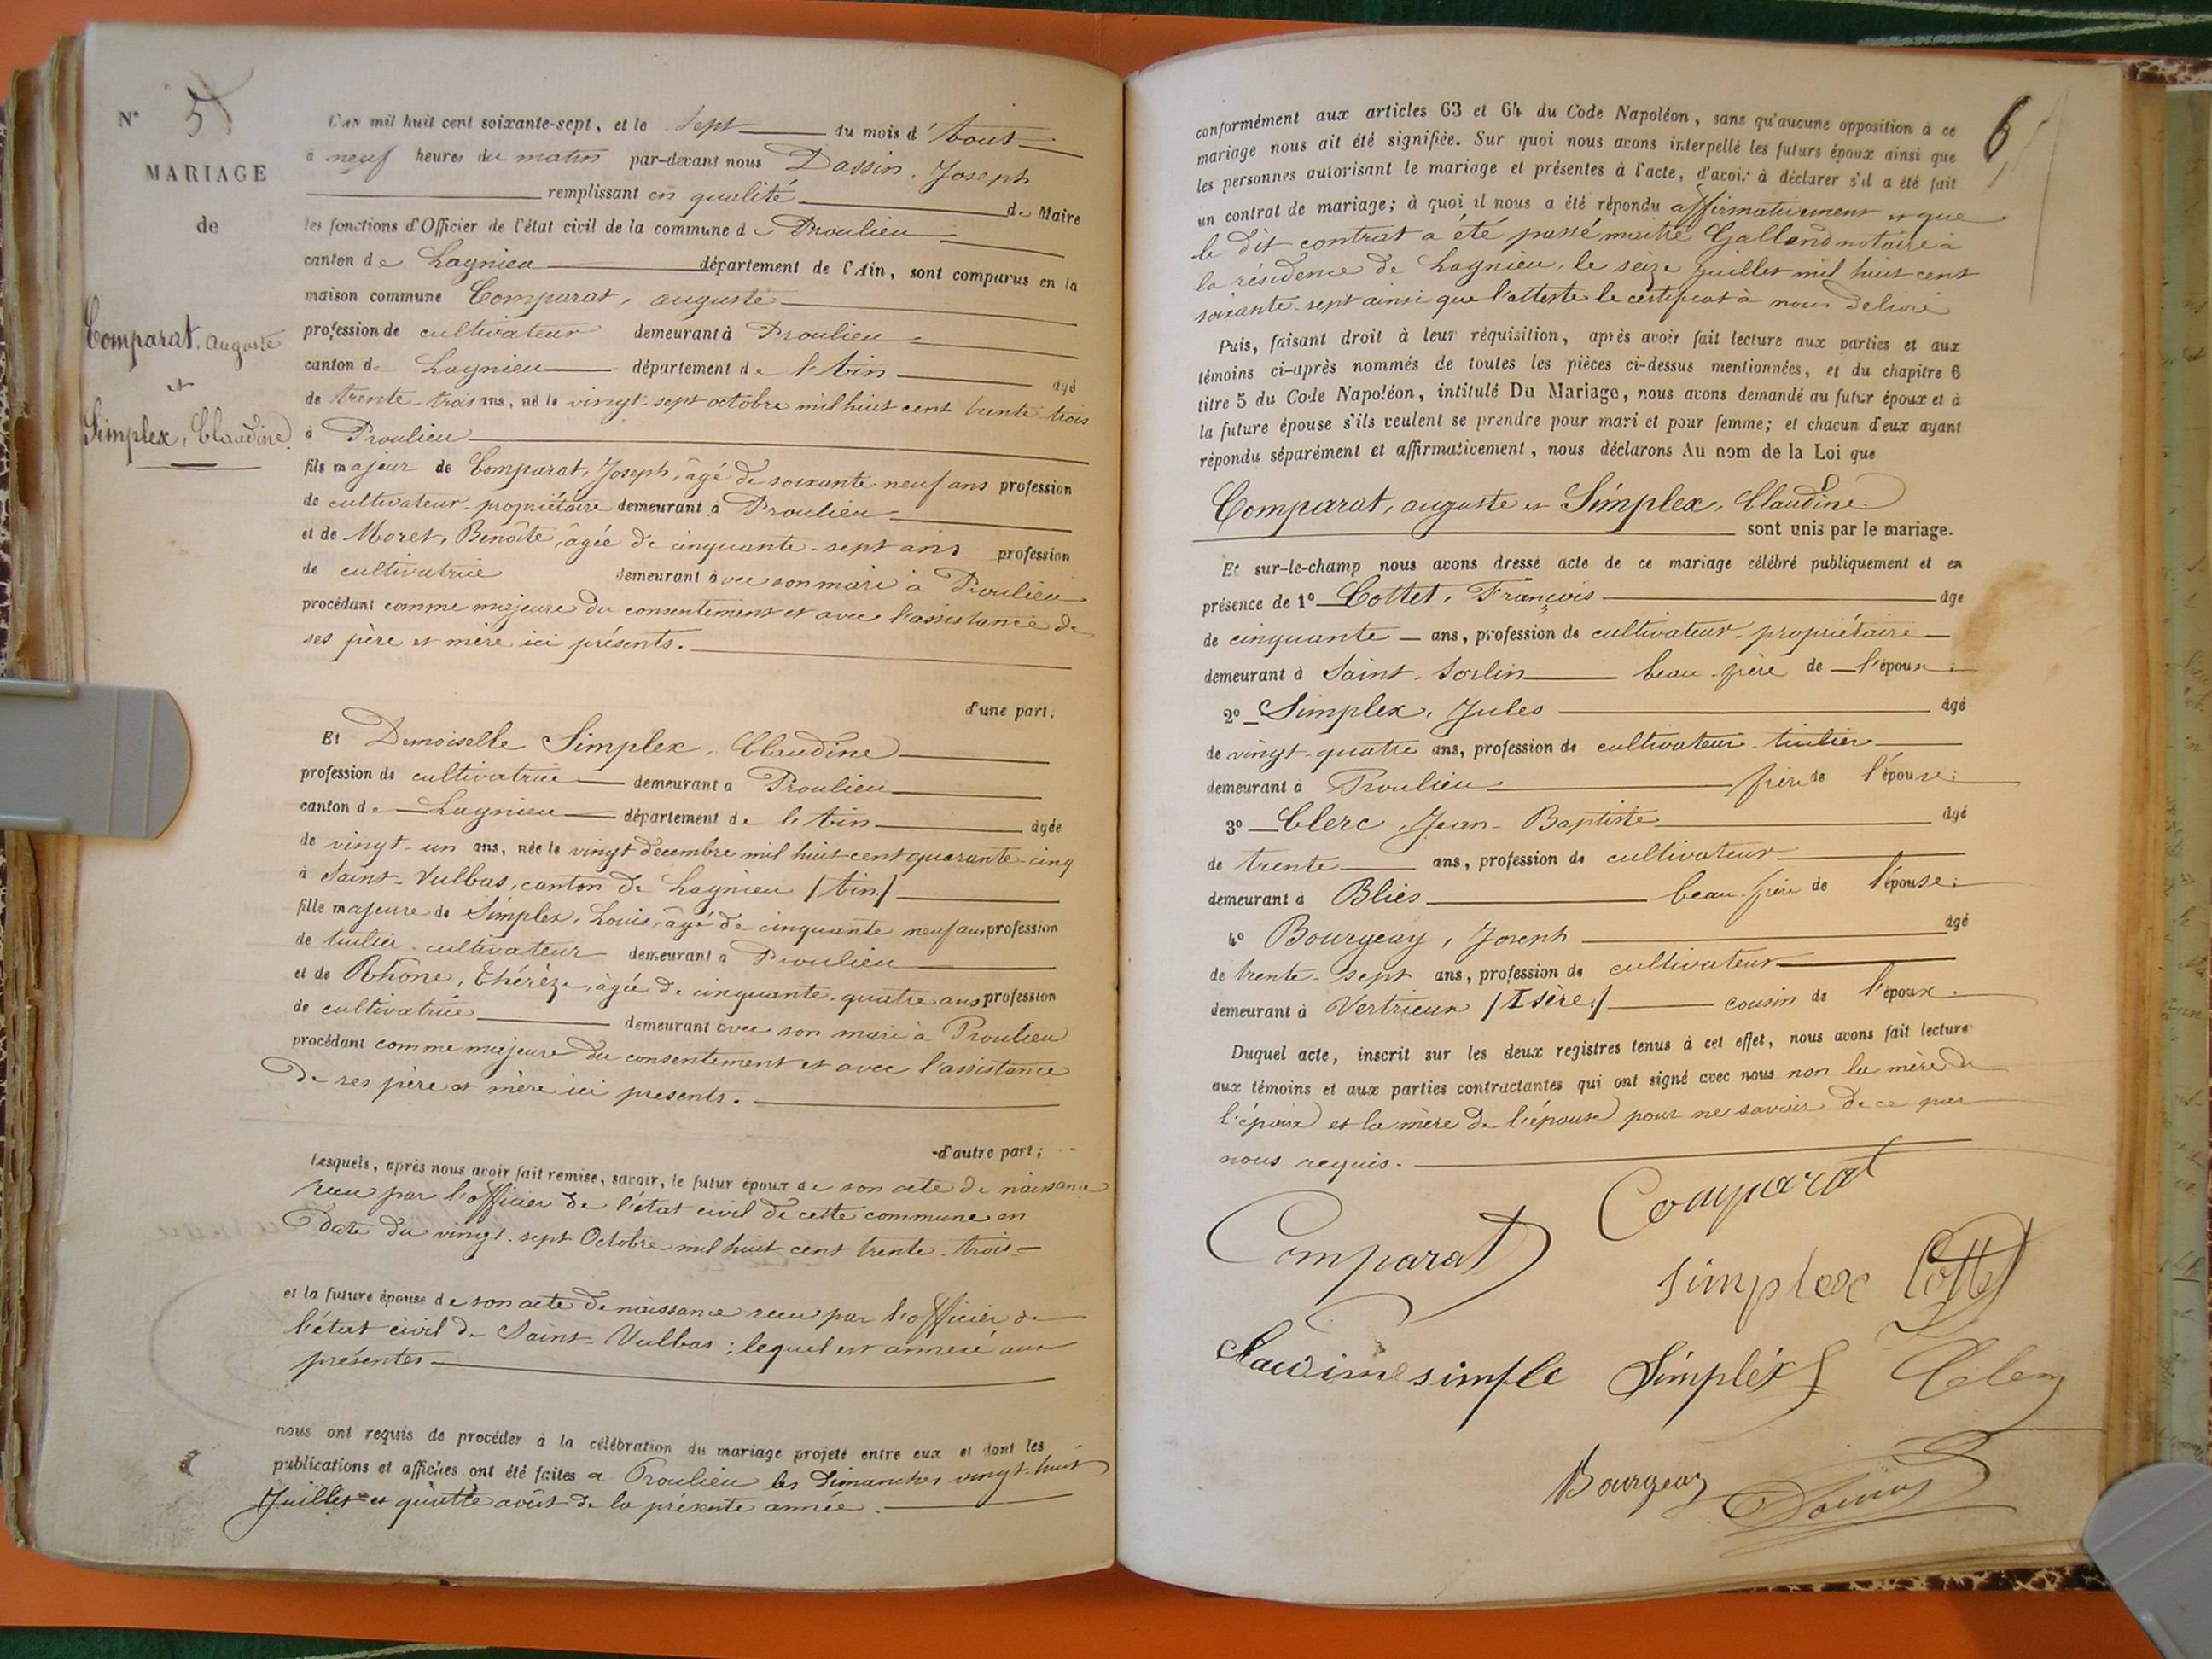 N° 5
MARIAGE
de
Comparat, auguste
et
Simplex, Claudine
L'AN mil huit cent soixante-sept, et le sept du mois d'Aout
à neuf heures du matin par-devant nous Dassin, Joseph
remplissant en qualité de Maire
les fonctions d'Officier de l'état civil de la commune de Proulieu
canton de Lagnieu département de l'Ain, sont comparus en la
maison commune Comparat, auguste
profession de cultivateur demeurant à Proulieu
canton de Lagnieu département de l'Ain âgé
de trente-trois ans, né le vingt-sept octobre mil huit cent trente trois
à Proulieu
fils majeur de Comparat, Joseph, âgé de soixante neuf ans profession
de cultivateur-propriétaire demeurant à Proulieu
et de Moret, Benoîte, âgée de cinquante-sept ans profession
de cultivatrice demeurant avec son mari à Proulieu
procédant comme majeure du consentement et avec l'assistance de
ses père et mère ici présents.
d'une part.
Et Demoiselle Simplex, Claudine
profession de cultivatrice demeurant à Proulieu
canton de Lagnieu département de l'Ain âgée
de vingt-un ans, née le vingt decembre mil huit cent quarante-cinq
à Saint-Vulbas, canton de Lagnieu (Ain)
fille majeure de Simplex, Louis, âgé de cinquante neuf ans profession
de tuilier-cultivateur demeurant à Proulieu
et de Rhône, Thérèze, âgée de cinquante-quatre ans profession
de cultivatrice demeurant avec son mari à Proulieu
procédant comme majeure du consentement et avec l'assistance
de ses père et mère ici presents.
d'autre part;
Lesquels, après nous avoir fait remise, savoir, le futur époux de son acte de naissance
reçu par l'officier de l'état civil de cette commune en
date du vingt-sept Octobre mil huit cent trente-trois
et la future épouse de son acte de naissance reçu par l'officier de
l'état civil de Saint-Vulbas; lequel est annexé aux
présentes
nous ont requis de procéder à la célébration du mariage projeté entre eux et dont les
publications et affiches ont été faites à Proulieu les dimanches vingt-huit
Juillet et quatre août de la présente année.
6
conformément aux articles 63 et 64 du Code Napoléon, sans qu'aucune opposition à ce
mariage nous ait été signifiée. Sur quoi nous avons interpellé les futurs époux ainsi que
les personnes autorisant le mariage et présentes à l'acte, d'avoir à déclarer s'il a été fait
un contrat de mariage; à quoi il nous a été répondu affirmativement et que
le dit contrat a été passé maitre Galland notaire à
la résidence de Lagnieu, le seize Juillet mil huit cent
soixante-sept ainsi que l'atteste le certificat à nous delivré
Puis, faisant droit à leur réquisition, après avoir fait lecture aux parties et aux
témoins ci-après nommés de toutes les pièces ci-dessus mentionnées, et du chapitre 6
titre 5 du Code Napoléon, intitulé Du Mariage, nous avons demandé au futur époux et à
la future épouse s'ils veulent se prendre pour mari et pour femme; et chacun d'eux ayant
répondu séparément et affirmativement, nous déclarons Au nom de la Loi que
Comparat, auguste et Simplex, Claudine
sont unis par le mariage.
Et sur-le-champ nous avons dressé acte de ce mariage célébré publiquement et en
présence de 1° Cottet, François âgé
de cinquante ans, profession de cultivateur-propriétaire
demeurant à Saint-Sorlin beau-frère de l'époux;
2° Simplex, Jules âgé
de vingt-quatre ans, profession de cultivateur-tuilier
demeurant à Proulieu frère de l'épouse;
3° Clerc, Jean-Baptiste âgé
de trente ans, profession de cultivateur
demeurant à Blies beau-frère de l'épouse;
4° Bourgeay, Joseph âgé
de trente-sept ans, profession de cultivateur
demeurant à Vertrieux (Isère) cousin de l'époux.
Duquel acte, inscrit sur les deux registres tenus à cet effet, nous avons fait lecture
aux témoins et aux parties contractantes qui ont signé avec nous non la mère de
l'époux et la mère de l'épouse pour ne savoir de ce par
nous requis.
Comparat
Comparat
simplex Cottet
Claudine simple Simplex Clerc
Bourgeay Dassin